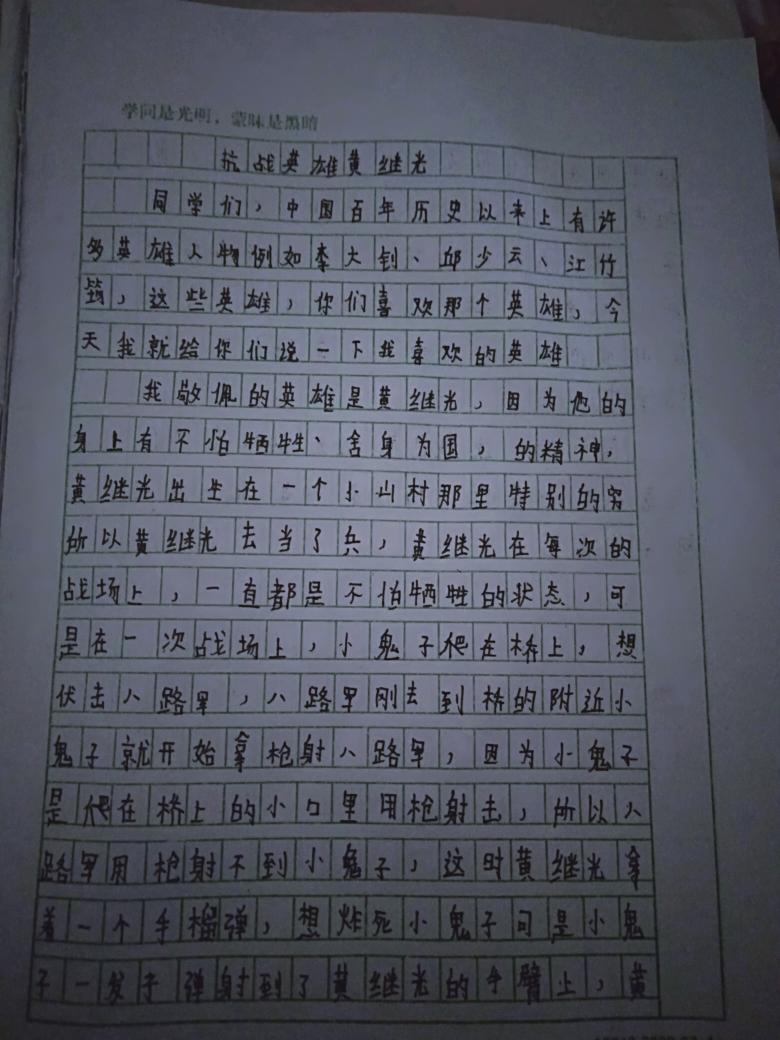 学问是光明，蒙昧是黑暗
抗战英雄黄继光
同学们，中国百年历史以来上有许
多英雄人物例如李大钊、邱少云、江竹
筠，这些英雄，你们喜欢那个英雄，今
天我就给你们说一下我喜欢的英雄
我敬佩的英雄是黄继光，因为他的
身上有不怕牺牲、舍身为国，的精神，
黄继光出生在一个小山村那里特别的穷
所以黄继光去当了兵，黄继光在每次的
战场上，一直都是不怕牺牲的状态，可
是在一次战场上，小鬼子爬在桥上，想
伏击八路军，八路军刚去到桥的附近小
鬼子就开始拿枪射八路军，因为小鬼子
是爬在桥上的小口里用枪射击，所以八
路军用枪射不到小鬼子，这时黄继光拿
着一个手榴弹，想炸死小鬼子可是小鬼
子一发子弹射到了黄继光的手臂上，黄